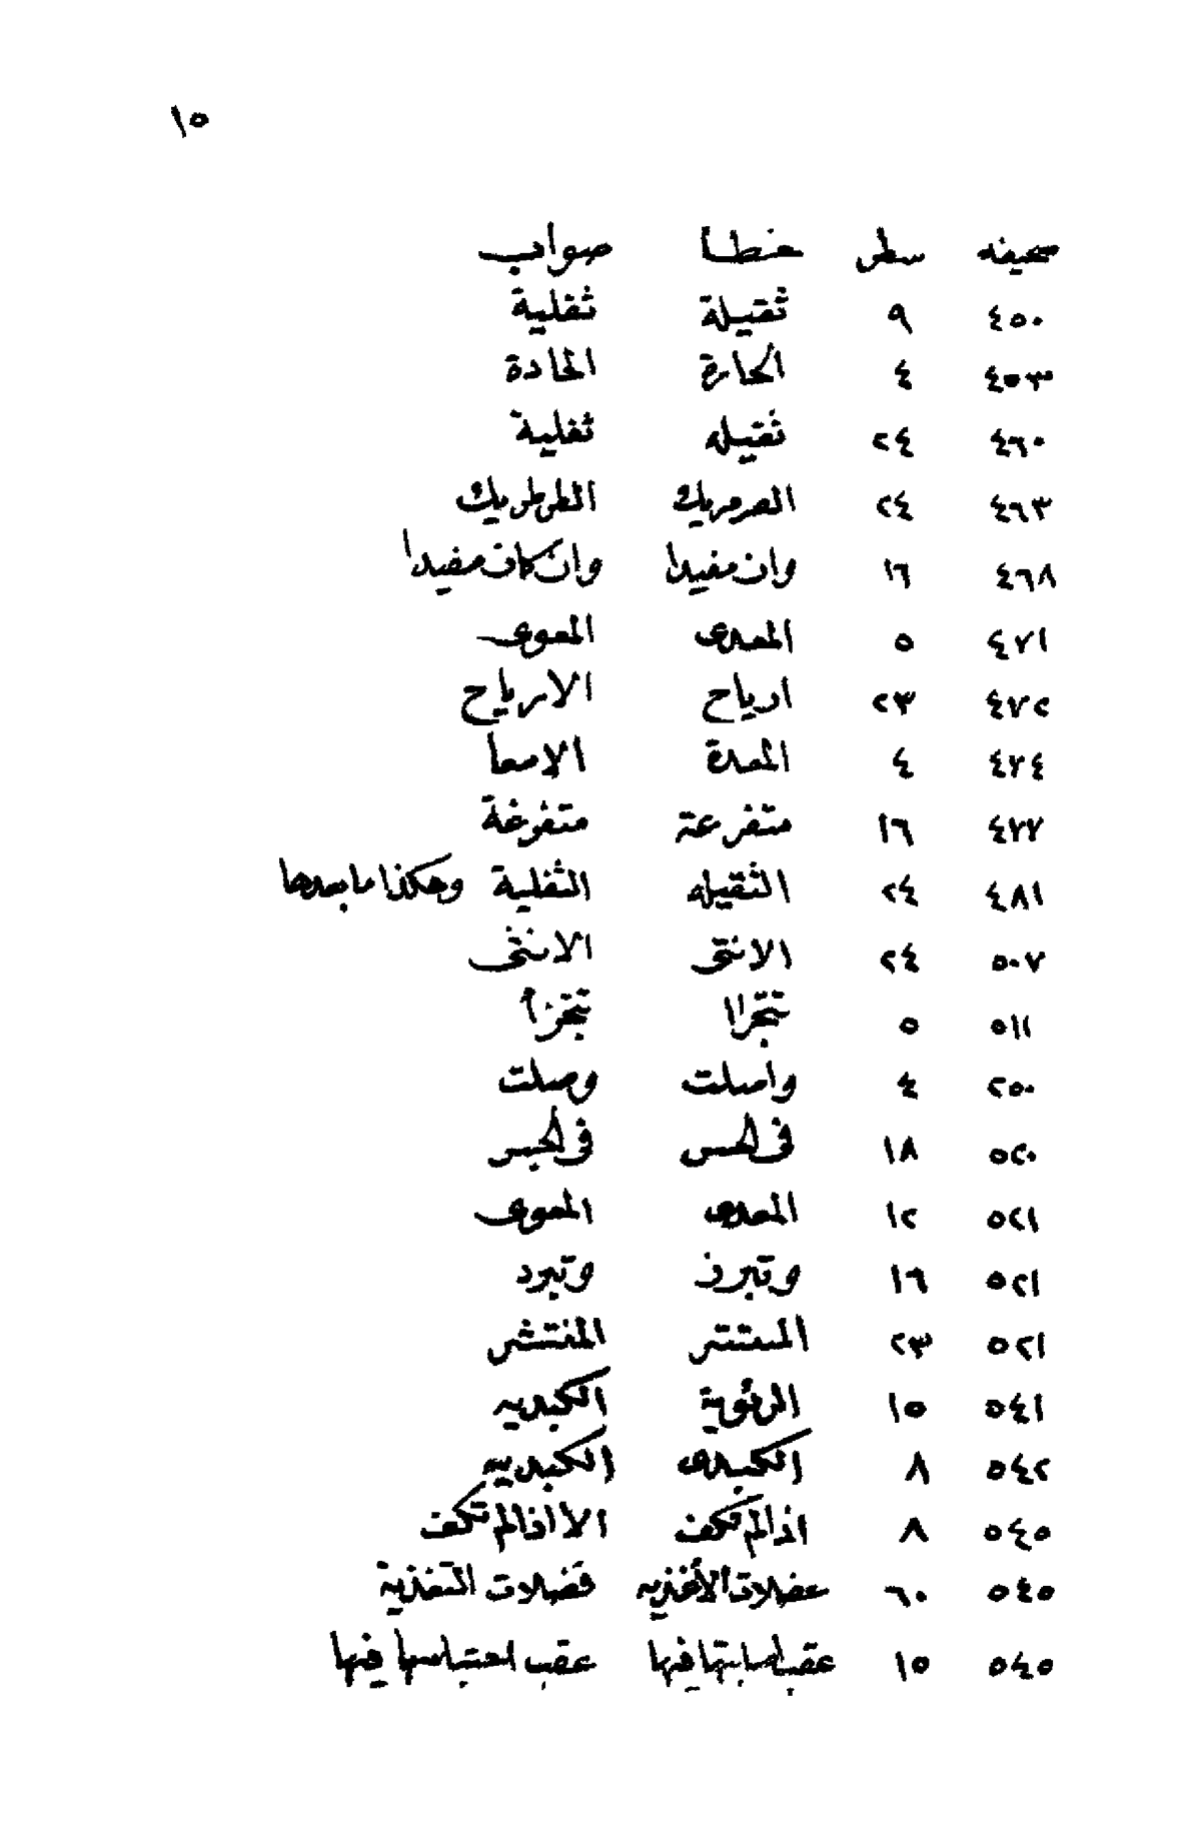 ١٥
صحيفه سطر خطأ صواب
٤٥٠ ٩ ثقيلة ثفلية
٤٥٣ ٤ الحارة الحادة
٤٦٠ ٢٤ ثقيله ثفلية
٤٦٣ ٢٤ الطرطريك
٤٦٨ ١٦ وان مفيدا وان كان مفيدا
٤٧١ ٥ المعدى المعوى
٤٧٢ ٢٣ ارياح الارياح
٤٧٤ ٤ المعدة الامعا
٤٧٧ ١٦ متفرعة متفرغة
٤٨١ ٢٤ الثقيله الثفلية وهكذا ما بعدها
٥٠٧ ٢٤ الانتى الانثى
٥١١ ٥ تتجزأ
٢٥٠ ٤ واصلت وصلت
٥٢٠ ١٨ فى الحس فى الحبس
٥٢١ ١٢ المعدى المعوى
٥٢١ ١٦ وتبرز وتبرد
٥٢١ ٢٣ المنتشر
٥٤١ ١٥ الرئوية الكبديه
٥٤٢ ٨ الكبدى الكبدييه
٥٤٥ ٨ اذا لم تكف الا اذا لم تكف
٥٤٥ ٦٠ عضلات الأغذيه فضلات التغذية
٥٤٥ ١٥ عقب اصابتها فيها عقب احتباسها فيها